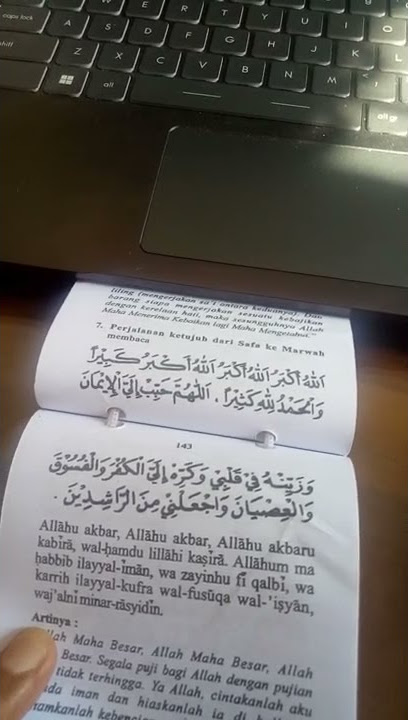 caps lock
A
S
D
F
G
H
J
K
L
E
R
T
Y
U
I
O
shift
Z
X
C
V
B
N
M
alt
alt gr
liling (mengerjakan sa'i antara keduanya). Dan
barang siapa mengerjakan sesuatu kebajikan
dengan kerelaan hati, maka sesungguhnya Allah
Maha Menerima Kebaikan lagi Maha Mengetahui."
7. Perjalanan ketujuh dari Safa ke Marwah
membaca
اَللهُ أَكْبَرُ اَللهُ أَكْبَرُ اَللهُ أَكْبَرُ كَبِيْرًا
وَالْحَمْدُ لِلّٰهِ كَثِيْرًا ، اَللّٰهُمَّ حَبِّبْ إِلَيَّ الْإِيْمَانَ
143
وَزَيِّنْهُ فِيْ قَلْبِيْ وَكَرِّهْ إِلَيَّ الْكُفْرَ وَالْفُسُوْقَ
وَالْعِصْيَانَ وَاجْعَلْنِيْ مِنَ الرَّاشِدِيْنَ .
Allāhu akbar, Allāhu akbar, Allāhu akbaru
kabīrā, wal-ḥamdu lillāhi kaṣirā. Allāhum ma
ḥabbib ilayyal-īmān, wa zayinhu fī qalbi, wa
karrih ilayyal-kufra wal-fusūqa wal-'iṣyān,
waj'alni minar-rāsyidīn.
Artinya :
Maha Besar, Allah Maha Besar, Allah
Besar. Segala puji bagi Allah dengan pujian
tidak terhingga. Ya Allah, cintakanlah aku
iman dan hiaskanlah ia di